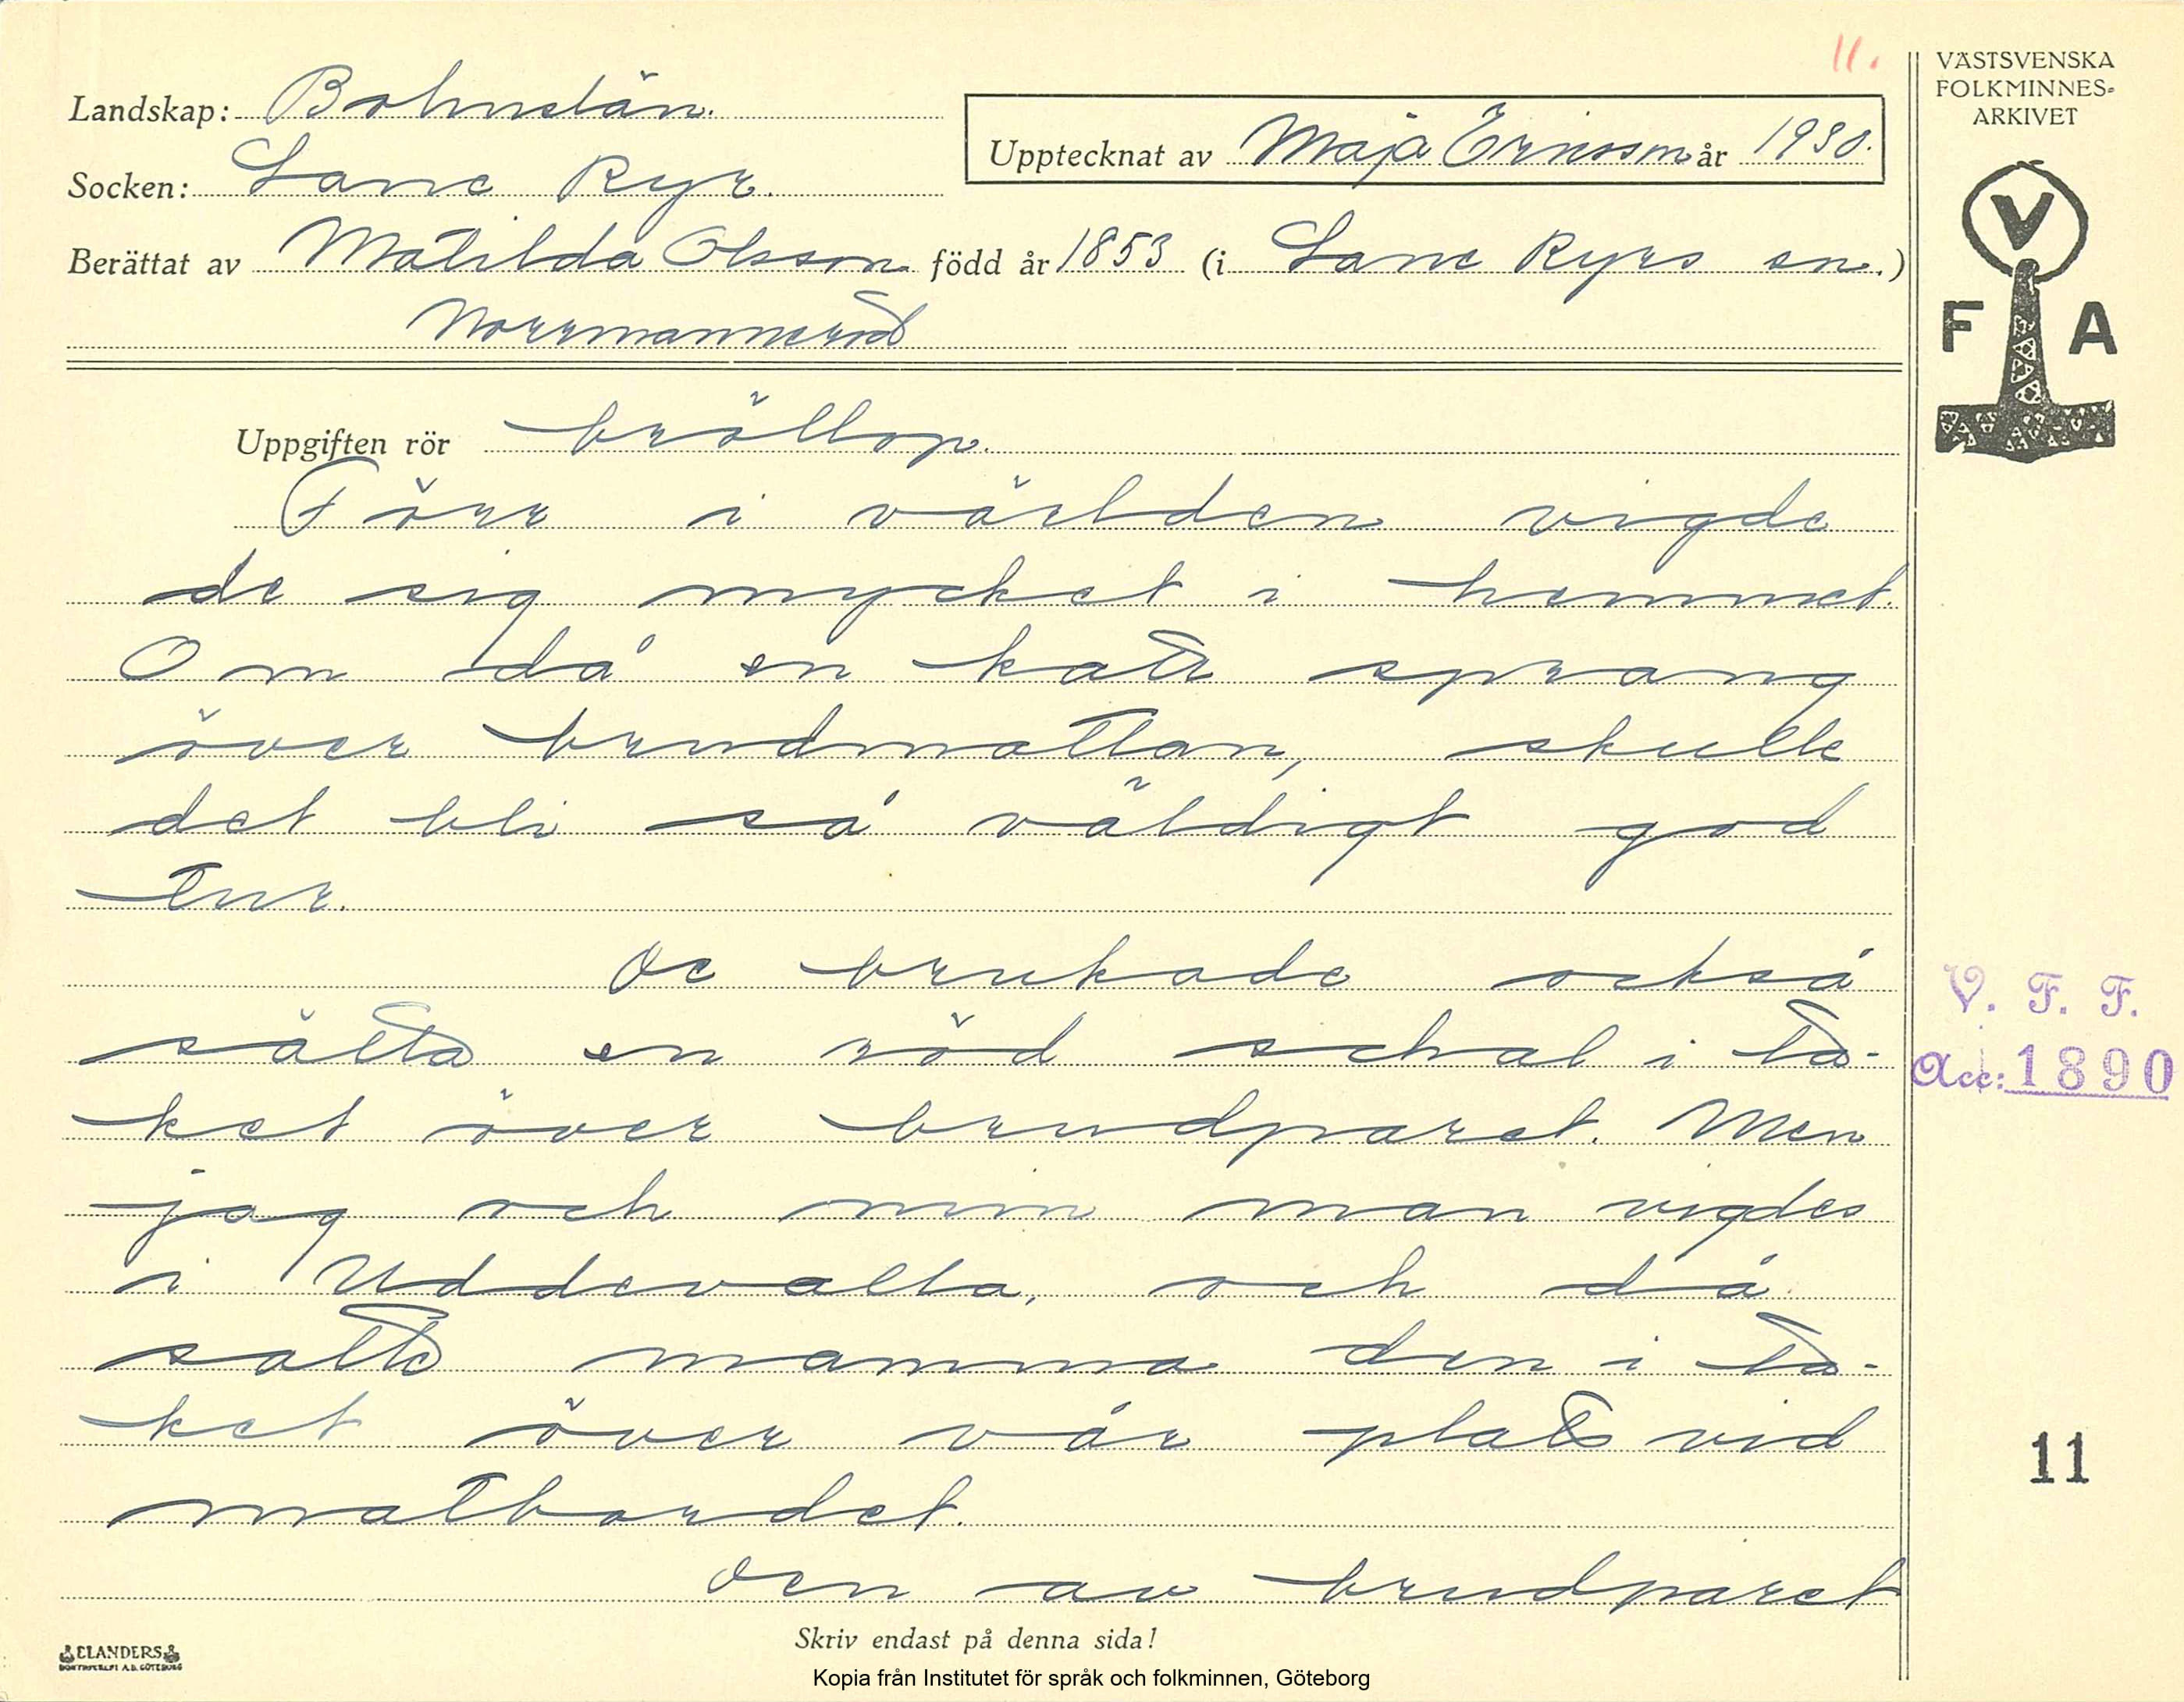 11.
VÄSTSVENSKA
FOLKMINNES-
ARKIVET
Landskap: Bohuslän.
Upptecknat av Maja Ericsson år 1930.
Socken: Lane Ryr.
Berättat av Matilda Olsson född år 1853 (i Lane Ryrs sn.)
Norrmanneröd
V
F A
Uppgiften rör bröllop.
Förr i världen vigde
de sig mycket i hemmet.
Om då en katt sprang
över brudmattan, skulle
det bli så väldigt god
tur.
De brukade också
sätta en röd schal i ta-
ket över brudparet. Men
jag och min man vigdes
i Uddevalla, och då
satte mamma den i ta-
ket över vår plats vid
matbordet.
Den av brudparet
V. F. F.
Acc: 1890
11
Skriv endast på denna sida!
ELANDERS
BOKTRYCKERI A.B. GÖTEBORG
Kopia från Institutet för språk och folkminnen, Göteborg